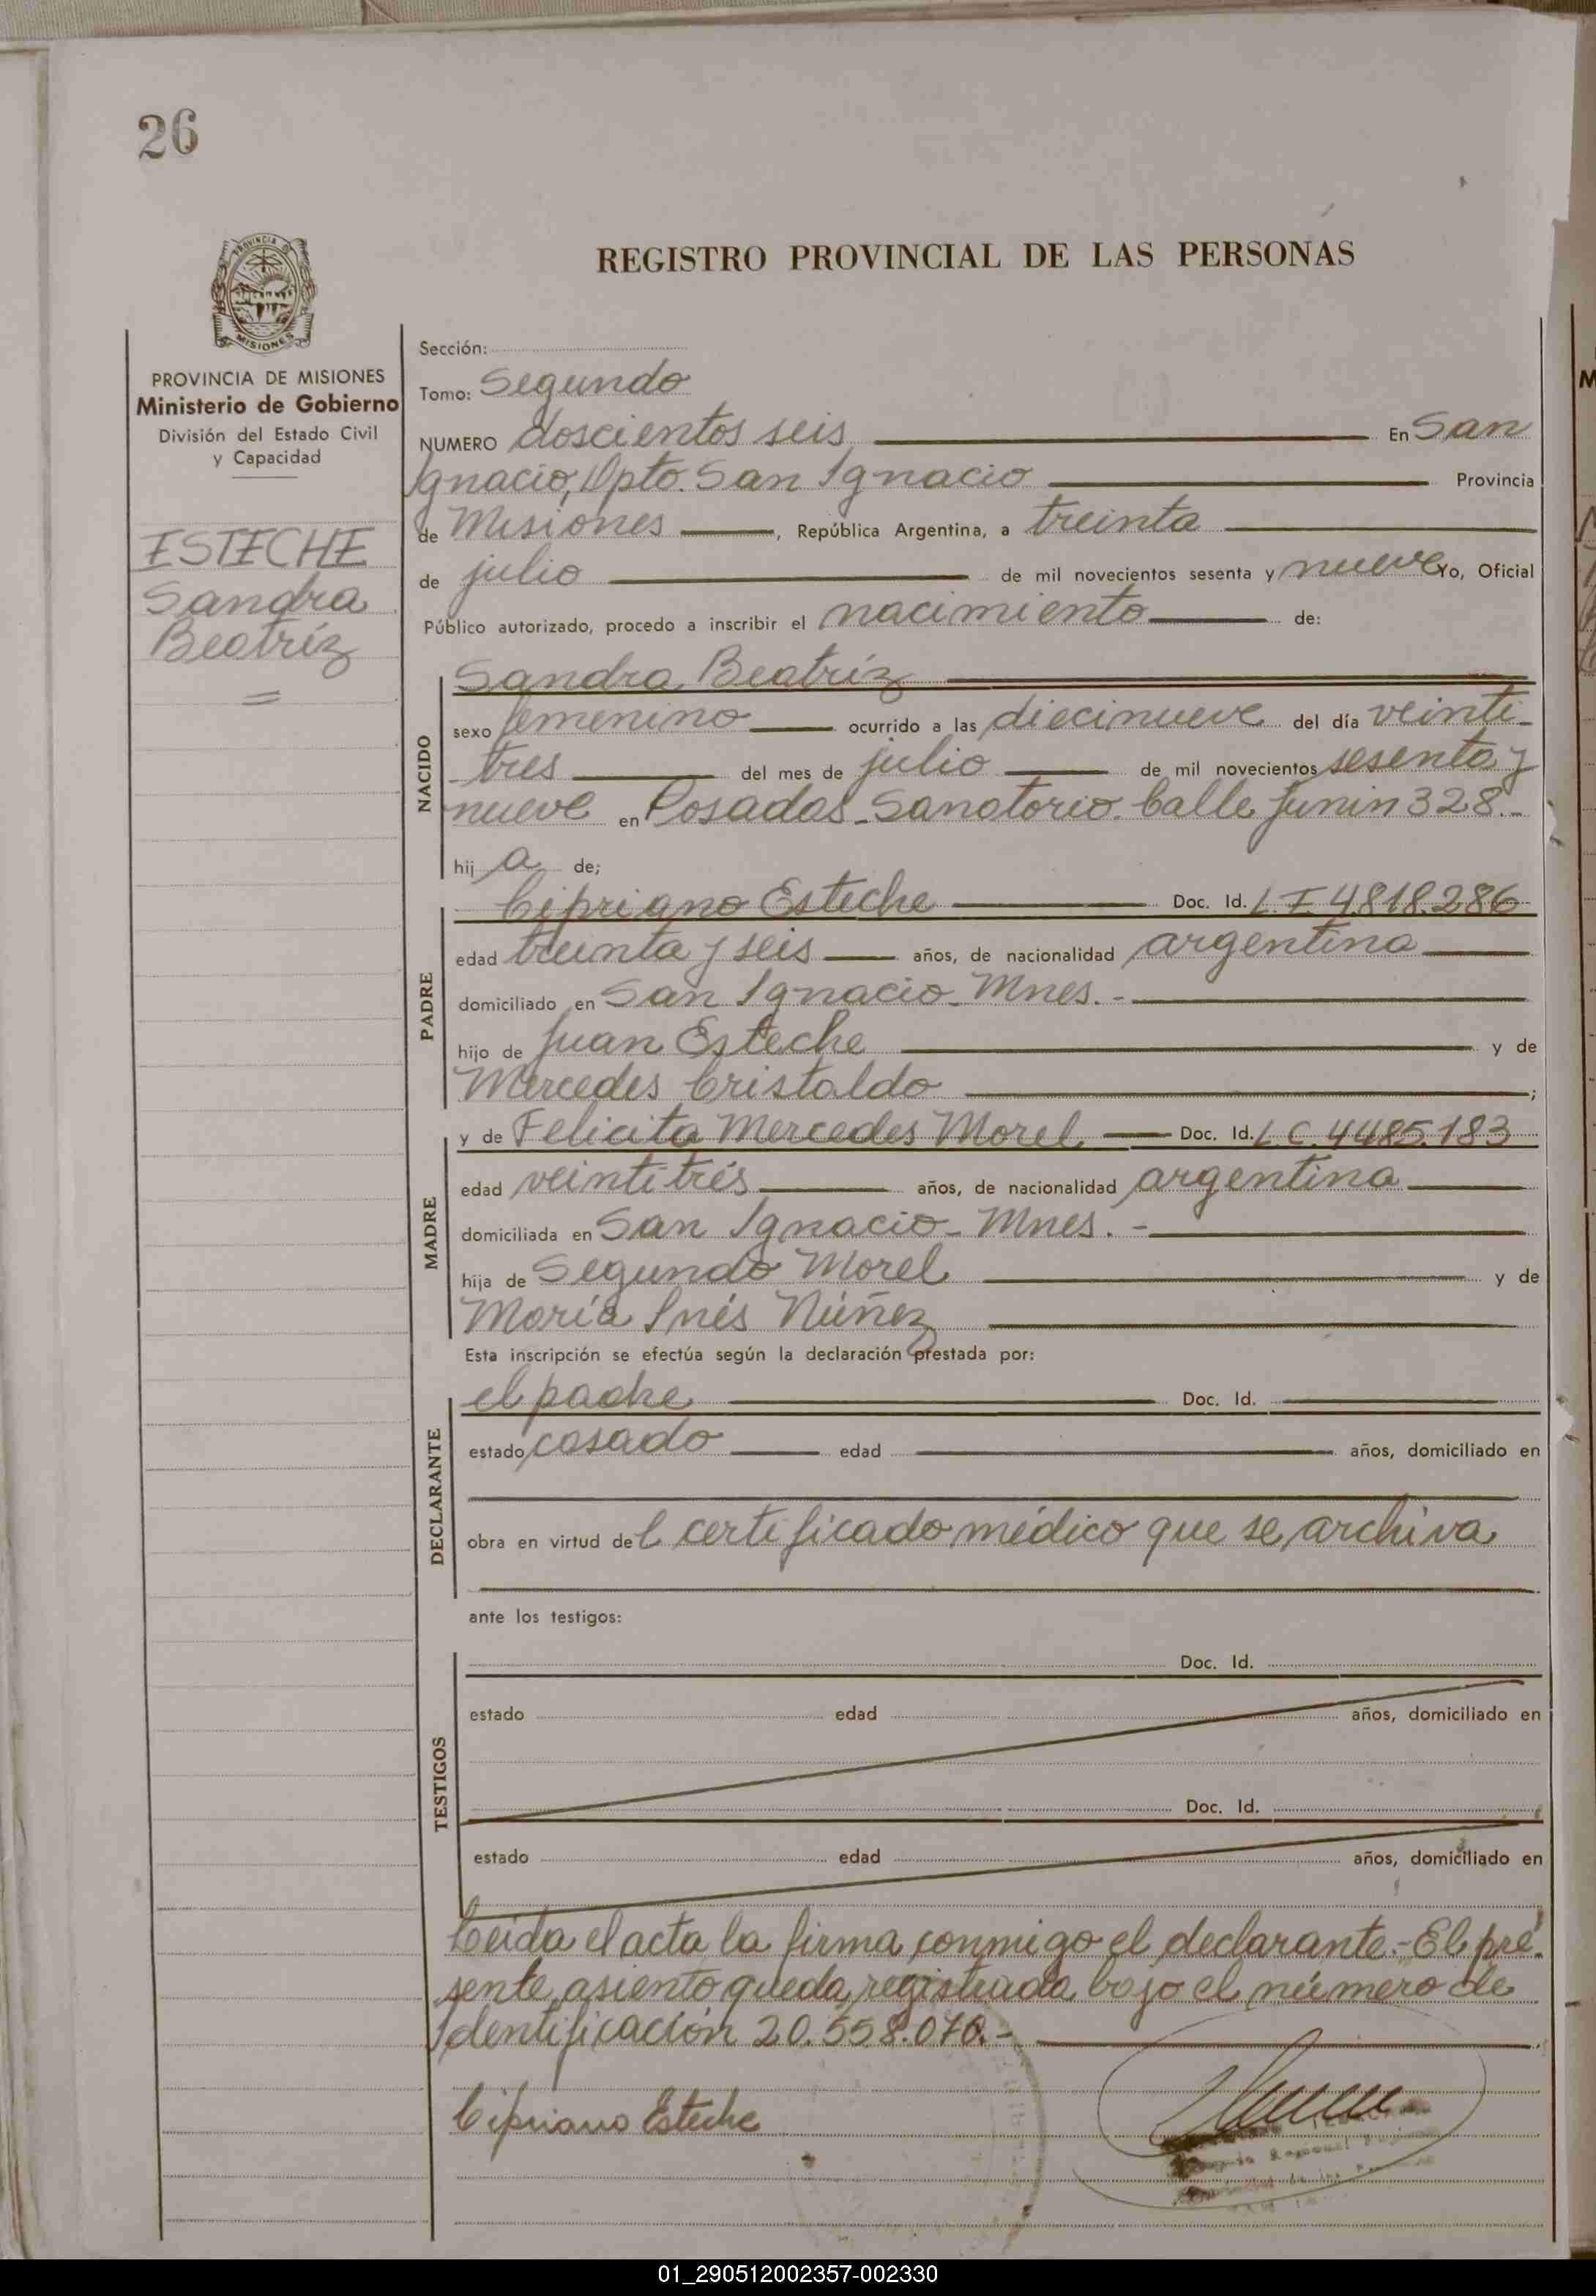 26
REGISTRO PROVINCIAL DE LAS PERSONAS
MISIONES
PROVINCIA DE MISIONES
Ministerio de Gobierno
División del Estado Civil
y Capacidad
ESTECHE
Sandra
Beatríz
Sección:
Tomo: Segundo
NUMERO doscientos seis En San
Ignacio, Dpto. San Ignacio Provincia
de Misiones, República Argentina, a treinta
de julio de mil novecientos sesenta y nueve Yo, Oficial
Público autorizado, procedo a inscribir el nacimiento de:
NACIDO
Sandra Beatríz
sexo femenino ocurrido a las diecinueve del día veinti-
tres del mes de julio de mil novecientos sesenta y
nueve en Posadas-Sanatorio. Calle Junin 328.-
hij a de;
PADRE
Cipriano Esteche Doc. Id. L.I. 4.818.286
edad treinta y seis años, de nacionalidad argentina
domiciliado en San Ignacio-Mnes.-
hijo de Juan Esteche y de
Mercedes Cristaldo ;
MADRE
y de Felicita Mercedes Morel Doc. Id. L.C. 4485.183
edad veintitrés años, de nacionalidad argentina
domiciliada en San Ignacio-Mnes.-
hija de Segundo Morel y de
María Inés Núñez
Esta inscripción se efectúa según la declaración prestada por:
DECLARANTE
el padre Doc. Id.
estado casado edad años, domiciliado en
obra en virtud del certificado médico que se archiva
ante los testigos:
TESTIGOS
Doc. Id.
estado edad años, domiciliado en
Doc. Id.
estado edad años, domiciliado en
Leída el acta la firma conmigo el declarante.-El pre-
sente asiento queda registrada bajo el número de
Identificación 20.558.070.-
Cipriano Esteche
01_290512002357-002330